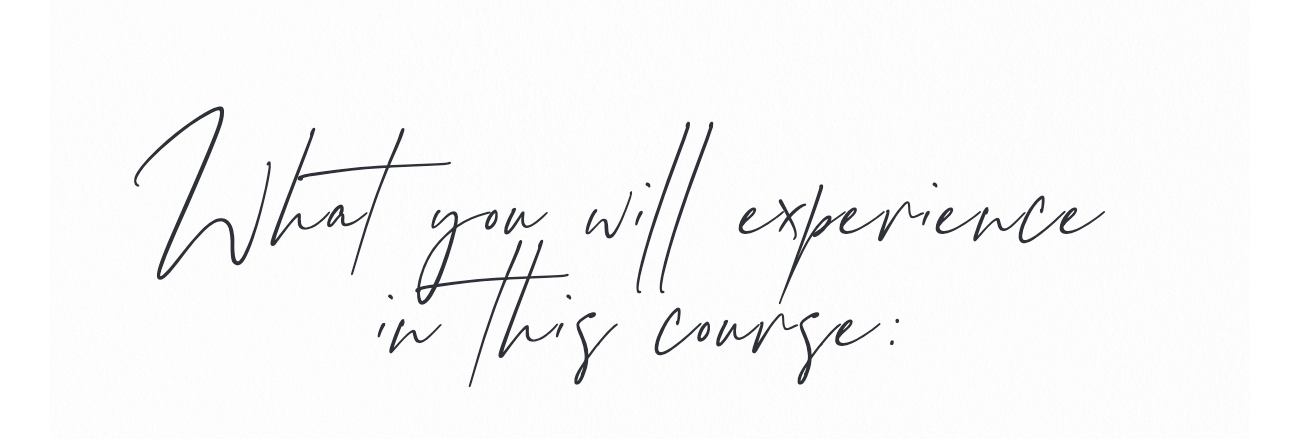 What you will experience
in this course: